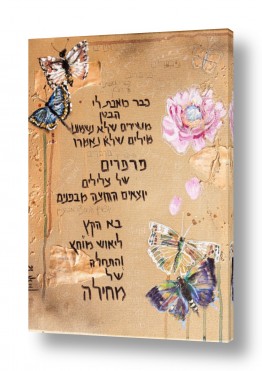 כבר כואבת לי
הבטן
משירים שלא נשמעו
מילים שלא נאמרו
פרפרים
של צלילים
יוצאים החוצה מבפנים
בא הקץ
ליאוש מוחץ
והתחלה
של
מחילה